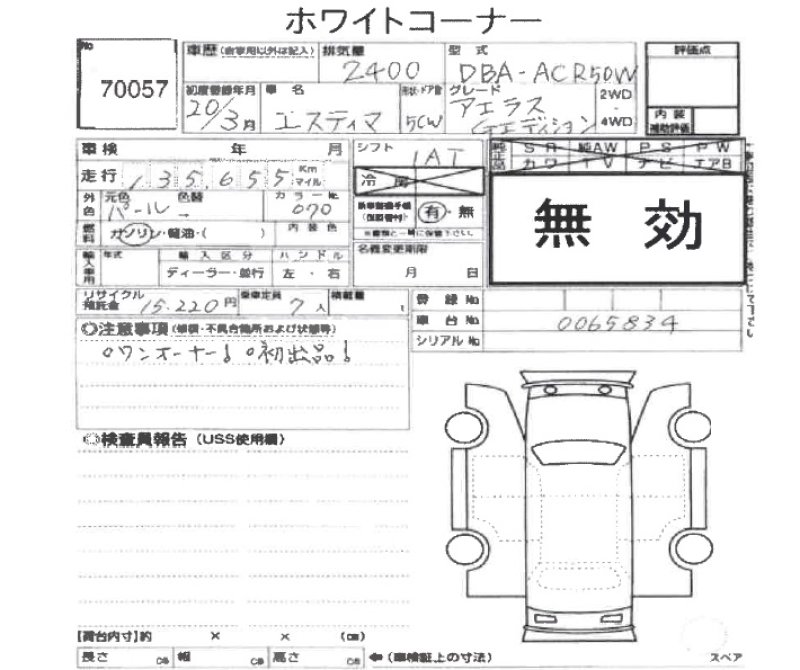 ホワイトコーナー
No 70057
車歴(自家用以外は記入) 排気量 2400 型式 DBA-ACR50W 評価点
初度登録年月 20/3月 車名 エスティマ 形状・ドア数 5CW グレード アエラス Gエディション 2WD・4WD 内装補助評価
車検 年 月 シフト IAT 純正品 SR 純AW PS PW
カワ TV ナビ エアB
走行 135,655 Km マイル 冷房
外色 元色 パール 色替 カラーNo 070 新車整備手帳(保証書付) 有・無
※書類と一緒に保管下さい。
燃料 ガソリン・軽油・( ) 内装色 無効
輸入車用 年式 輸入区分 ハンドル 名義変更期限
ディーラー・並行 左・右 月 日
リサイクル預託金 15.220円 乗車定員 7人 積載量 t 登録No
車台No 0065834
シリアルNo
◎注意事項(修復・不具合箇所および状態等)
◦ワンオーナー! ◦初出品!
◎検査員報告(USS使用欄)
【荷台内寸】約 × × (cm)
長さ cm 幅 cm 高さ cm ←(車検証上の寸法) スペア